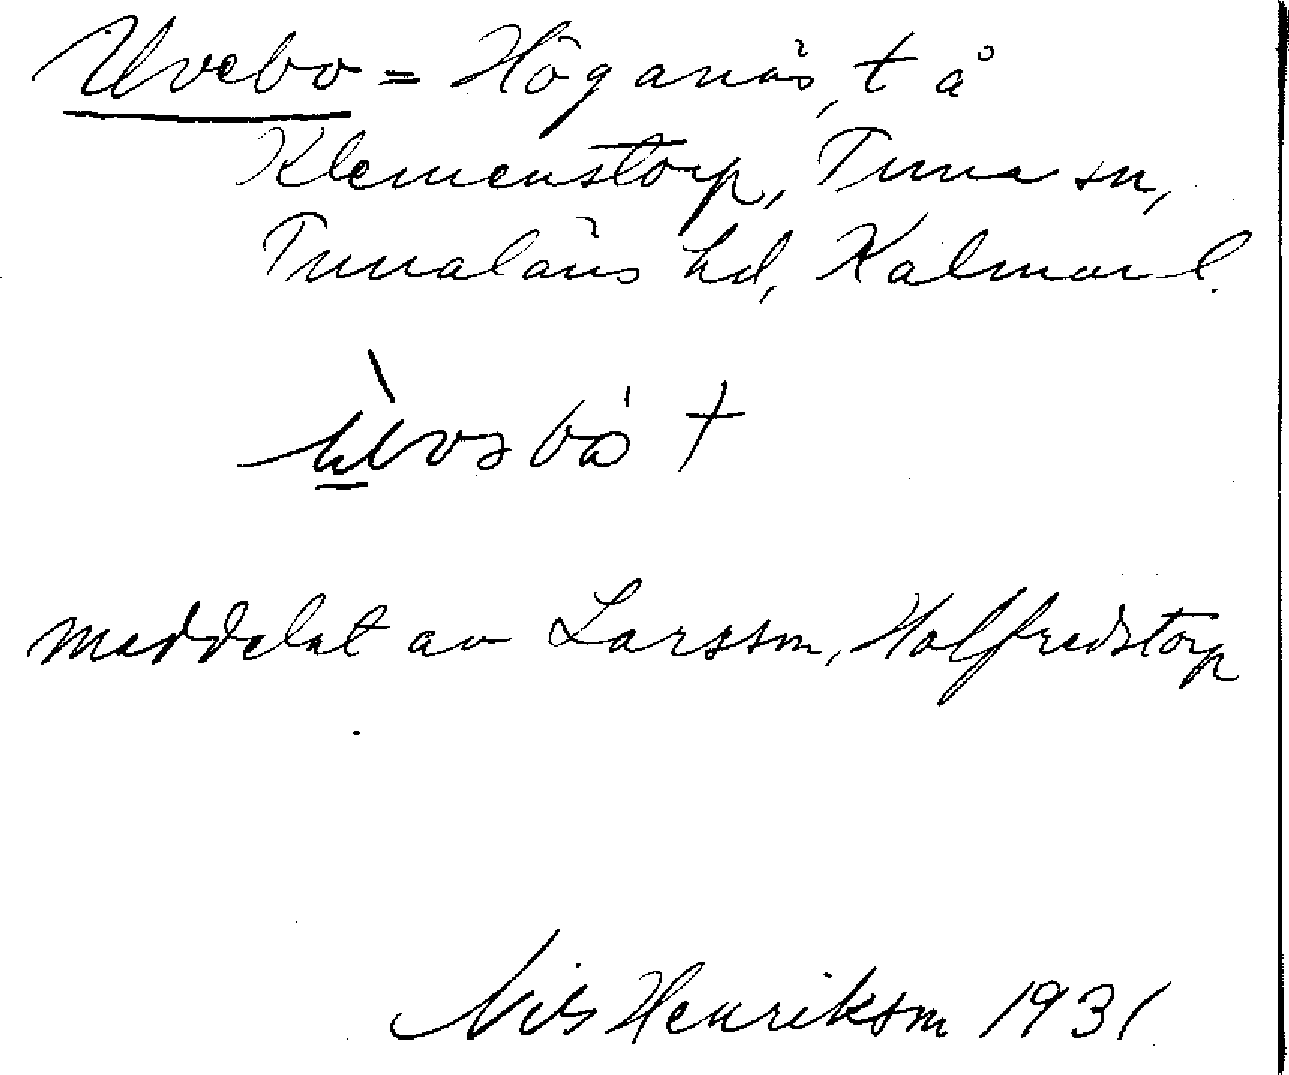 Uvebo = Höganäs, t å
Klemenstorp, Tuna sn,
Tunaläns hd, Kalmar l.
meddelat av Larsson, Holfredstorp
Nils Henriksson 1931